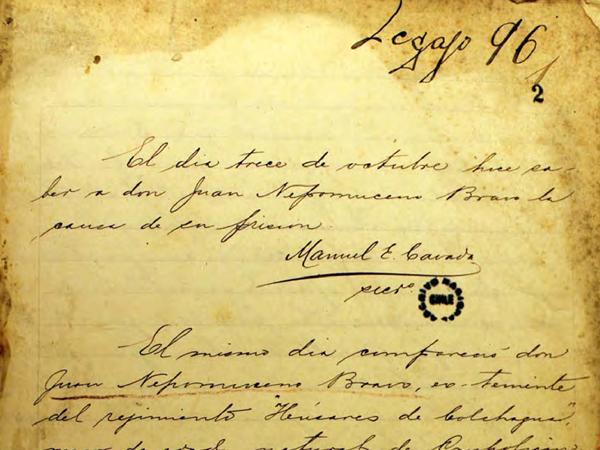 Legajo 96
2
El dia trece de octubre hice sa-
ber a don Juan Nepomuceno Bravo la
causa de su prision.
Manuel E. Cavada
secro.
ARCHIVO NACIONAL
CHILE
El mismo dia compareció don
Juan Nepomuceno Bravo, ex-teniente
del rejimiento "Húsares de Colchagua",
de edad, natural de